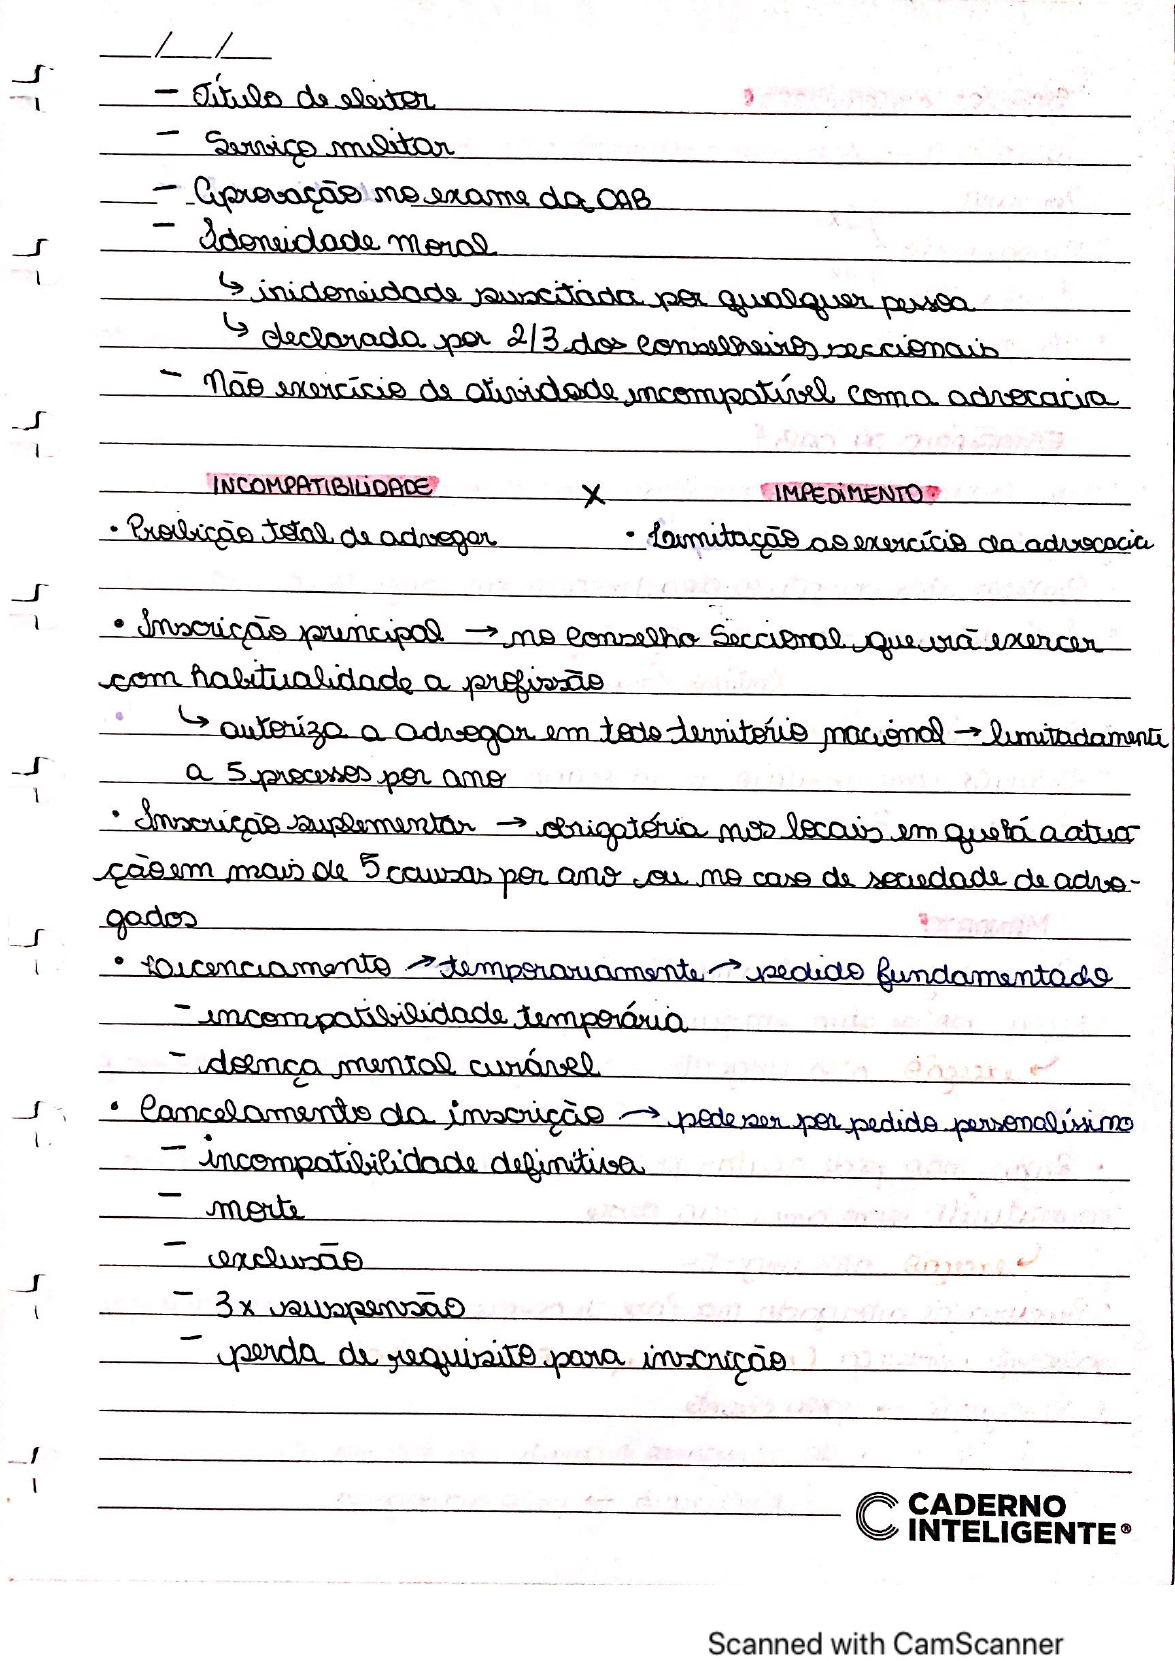 __/__/__
- Título de eleitor
- Serviço militar
- Aprovação no exame da OAB
- Idoneidade moral
↳ inidoneidade suscitada por qualquer pessoa
↳ declarada por 2/3 dos conselheiros seccionais
- Não exercício de atividade incompatível com a advocacia
INCOMPATIBILIDADE X IMPEDIMENTO
• Proibição total de advogar • Limitação ao exercício da advocacia
• Inscrição principal → no Conselho Seccional que irá exercer
com habitualidade a profissão
↳ autoriza a advogar em todo território nacional → limitadamente
a 5 processos por ano
• Inscrição suplementar → obrigatória nos locais em que há a atua
ção em mais de 5 causas por ano ou no caso de sociedade de advo-
gados
• Licenciamento → temporariamente → pedido fundamentado
- incompatibilidade temporária
- doença mental curável
• Cancelamento da inscrição → pode ser por pedido personalíssimo
- incompatibilidade definitiva
- morte
- exclusão
- 3x suspensão
- perda de requisito para inscrição
CADERNO
INTELIGENTE®
Scanned with CamScanner